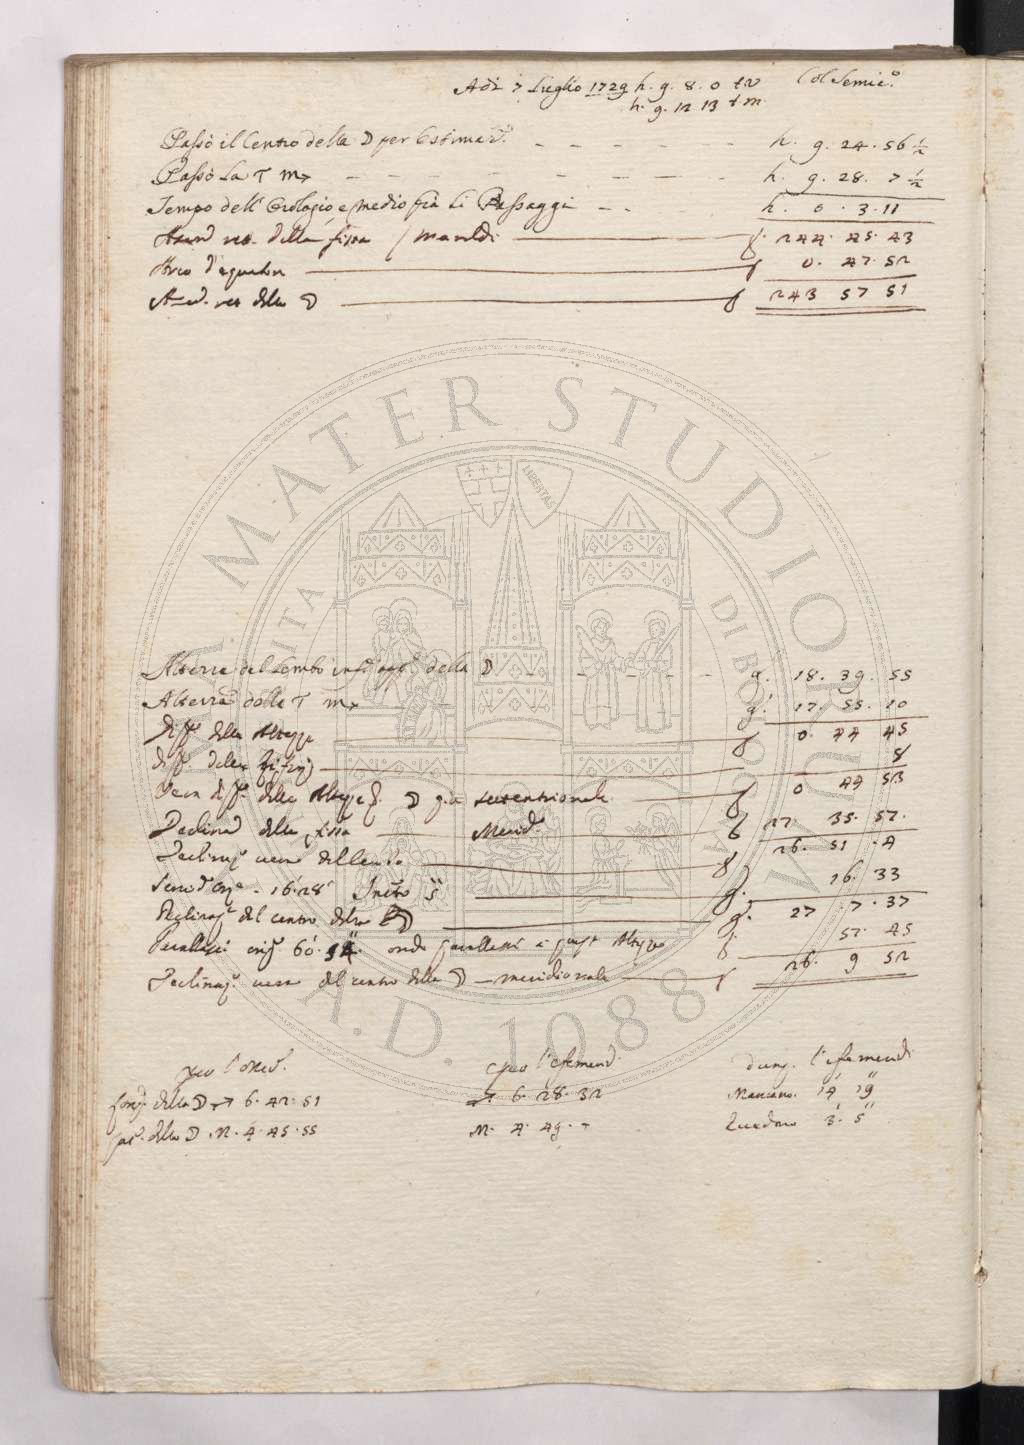 Adi 7 Luglio 1729 h. 9. 8. 0 t v Col Semic.o
h. 9. 12 13 t m
Passò il Centro della ☽ per Estimaz.e h. 9. 24. 56 1/2
Passò la τ ♏ h. 9. 28. 7 1/2
Tempo dell' Orologio e medio frà li Passaggi h. 0. 3. 11
Ascend. ret. della fissa Manfredi g. 244. 45. 43
Arco d'equator g 0. 47. 52
Ascen. ret della ☽ g 243 57 51
ALMA MATER STUDIORUM
UNIVERSITA DI BOLOGNA
LIBERTAS
A.D. 1088
Altezza del Lembo inf. app. della ☽ g. 18. 39. 55
Altezza della τ ♏ g. 17. 55. 10
Diff. delle Altezze g 0. 44 45
diff. delle 8
Vera diff. delle Altezze ☽ più settentrionale g 0 44 53
Declinaz. della fissa Merid. g 27. 35. 57.
Declinaz. vera del lembo g 26. 51. 4
Semid. 16. 28 5'' g. 16. 33
Declinaz. del centro della ☽ g. 27. 7. 37
60. onde g. 57. 45
Declinaz. vera del centro della ☽ meridionale g 26. 9 52
per l'osserv. per l'efemerid. l'efemerid.
Long. della ☽ ♐ 6. 42. 51 ♐ 6. 28. 32 Mancano. 14' 19''
Lat. della ☽ M. 4. 45. 55 M. 4. 49. 3' 5''